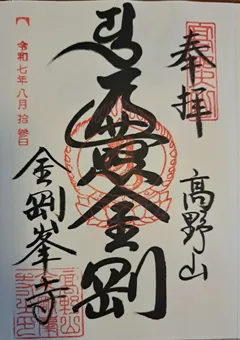 奉拝
高野山
遍照金剛
金剛峯寺
令和七年八月拾参日